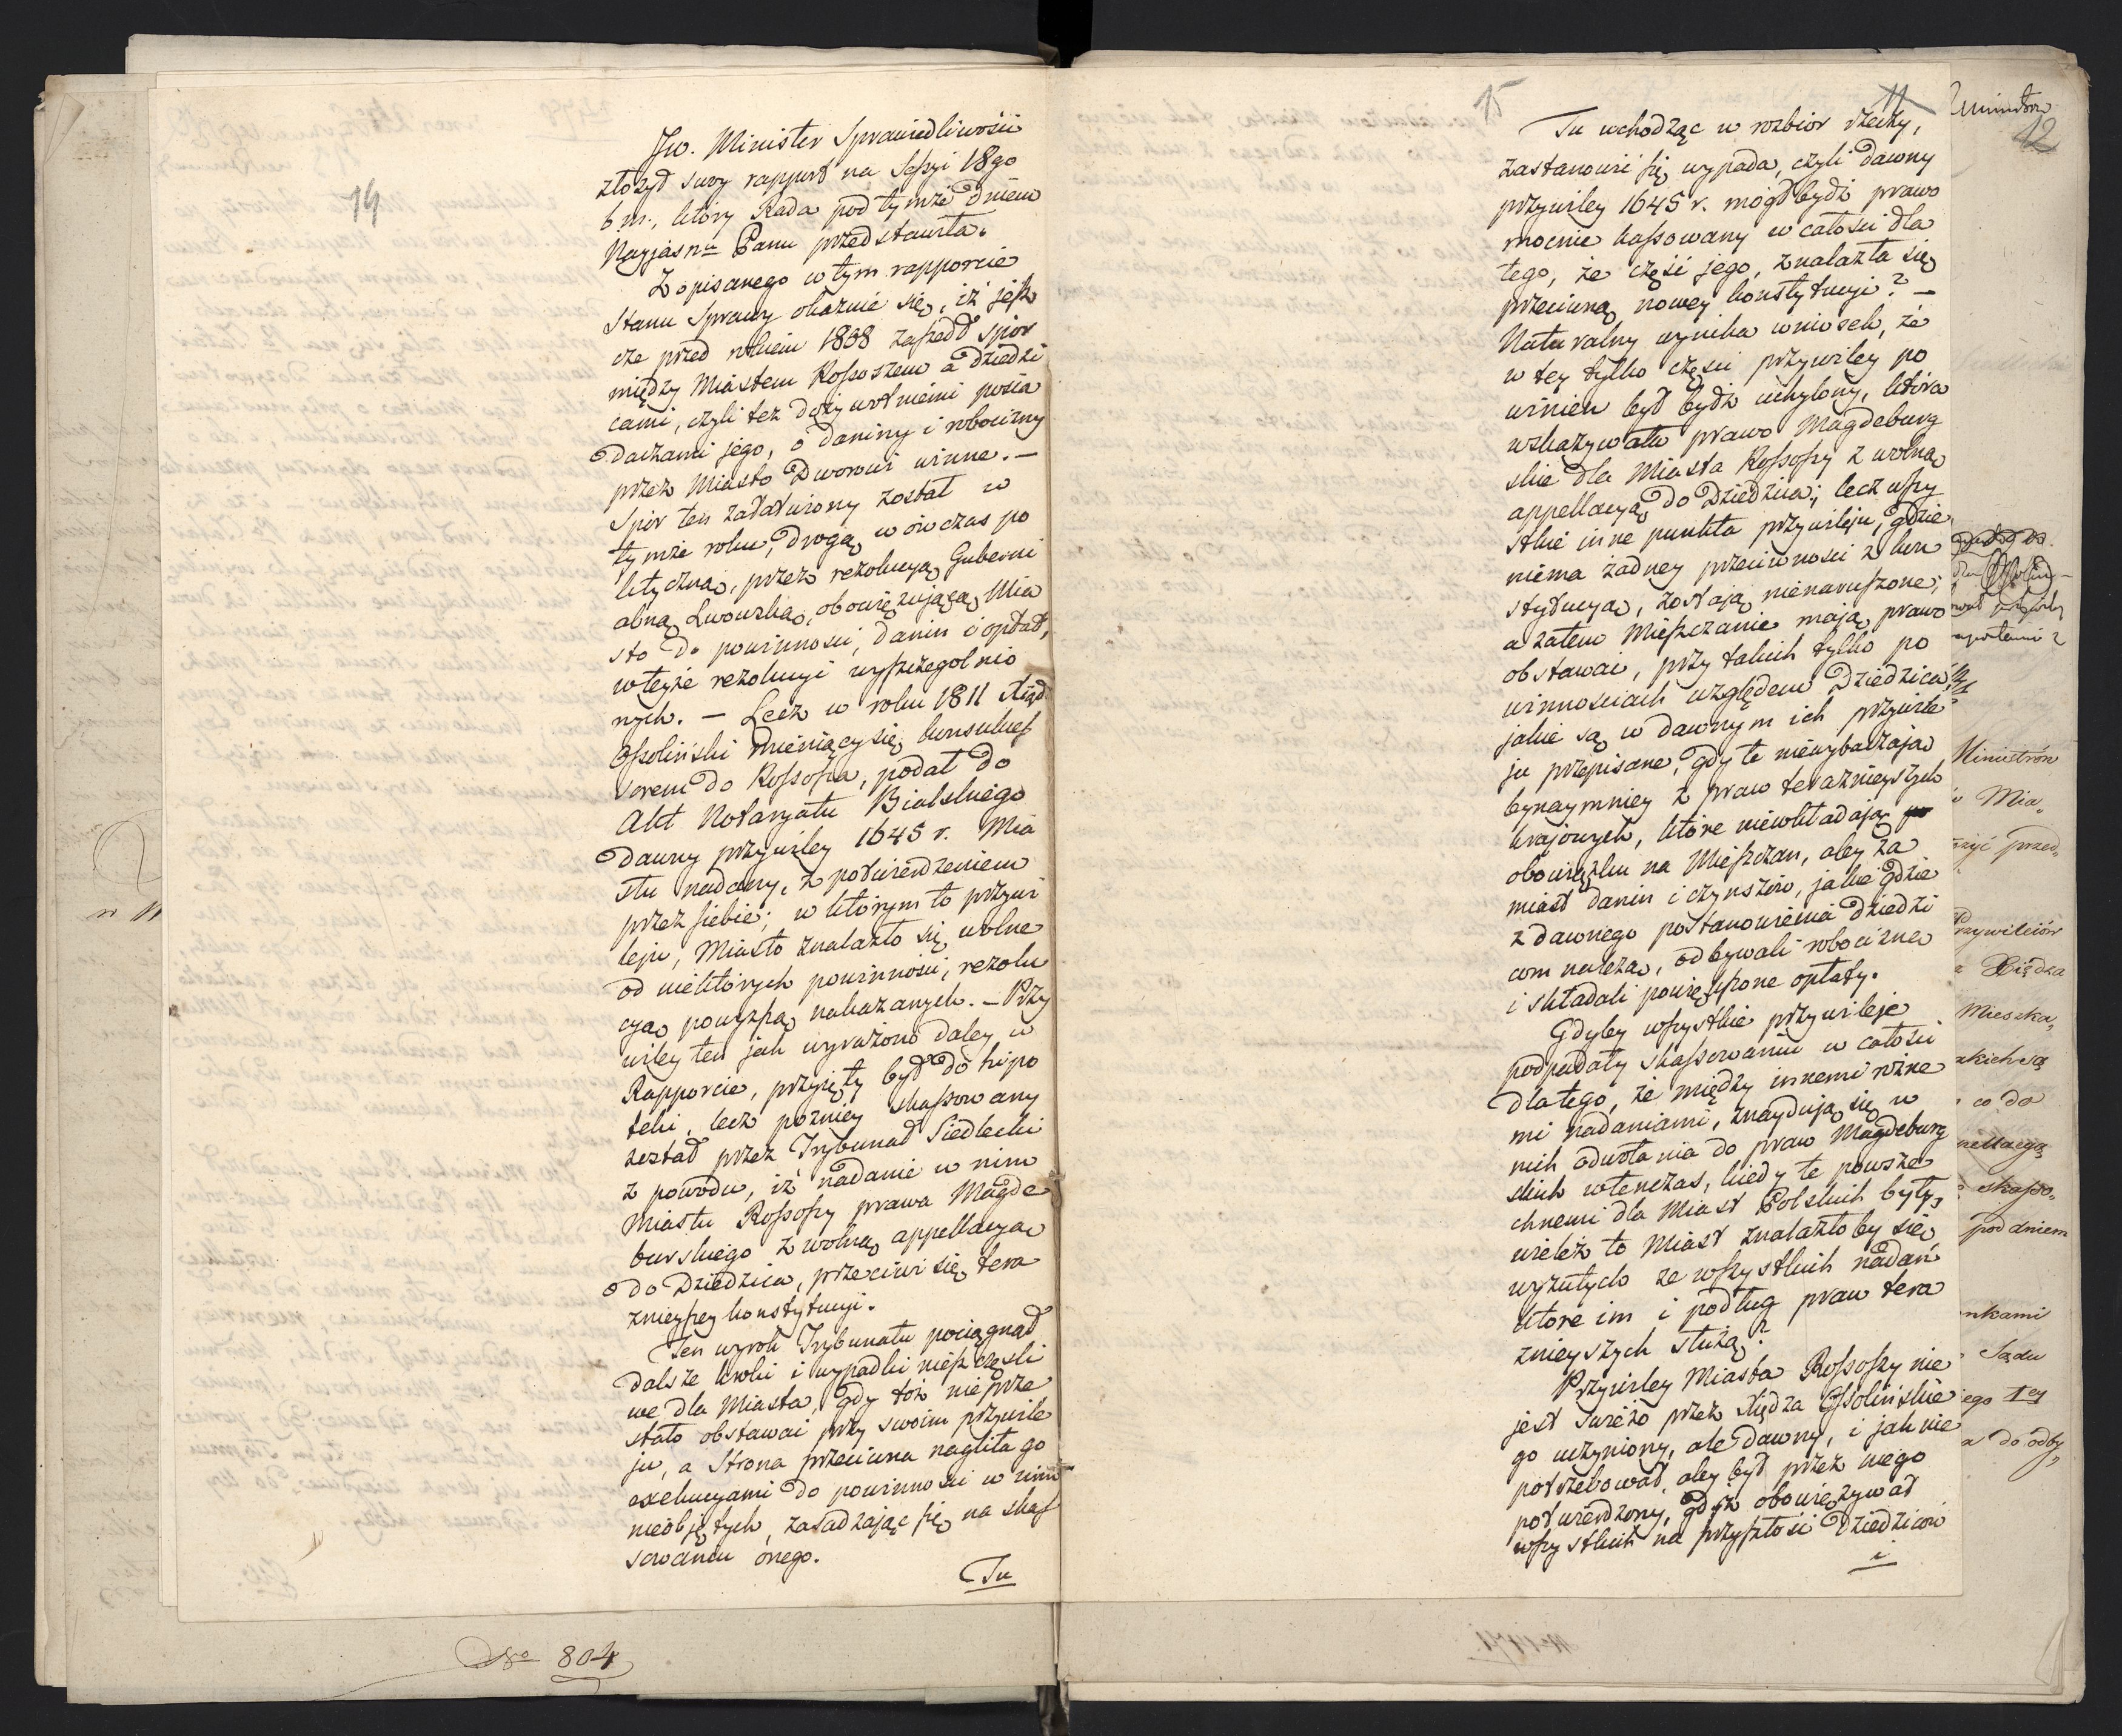 14
JW. Minister Sprawiedliwości
złożył swoy rapport na Sessyi 18go
b.m., który Rada pod tymże dniem
Nayjasnu Panu przedstawiła.
Z opisanego w tym rapporcie
Stanu Sprawy okazuie się, iż jesz
cze przed rokiem 1808 zaszedł spor
między Miastem Rossoszem a dziedzi
cami, czyli też dożywotniemi posia
daczami jego, o daniny i robocizny
przez Miasto Dworowi winne. —
Spór ten załatwiony został w
tymże roku, drogą wówczas po
lityczną, przez rezolucyą Guberni
alną Lwowską, obowięzującą Mia
sto do powinności, danin i opłat,
w teyże rezolucyi wyszczegolnio
nych. — Lecz w roku 1811 Xiądz
Ossoliński mieniący się konsukces
sorem do Rossosza, podał do
Akt Notaryatu Bialskiego
dawny przywiley 1645 r. Mia
stu nadany, z potwierdzeniem
przez siebie; w którym to przywi
leju, Miasto znalazło się wolne
od niektórych powinności, rezolu
cyą powyższą nakazanych. — Przy
wiley ten jak wyrażono daley w
Rapporcie, przyięty był do hipo
teki, lecz pozniey skassowany
został przez Trybunał Siedlecki
z powodu, iż nadanie w nim
Miastu Rossoszy prawa Magde
burskiego z wolną appellacyą
do Dziedzica, przeciwi się tera
znieyszey konstytucyi.
Ten wyrok Trybunału pociągnął
dalsze kroki i wypadki nieszczęśli
we dla Miasta, gdy toż nieprze
stało obstawać przy swoim przywile
ju, a Strona przeciwna nagliła go
exekucyami do powinności w nim
nieobjętych, zasadzając się na skas
sowaniu onego.
Tu
No 804
15
11
Tu wchodząc w rozbior rzeczy,
zastanowić się wypada, czyli dawny
przywiley 1645 r. mógł bydź prawo
mocnie kassowany w całości dla
tego, że część jego, znalazła się
przeciwną nowey konstytucyi? —
Naturalny wynika wniosek, że
w tey tylko części przywiley po
winien był bydź uchylony, która
wskazywała prawo Magdeburg
skie dla Miasta Rossoszy z wolną
appellacyą do Dziedzica; lecz wszy
stkie inne punkta przywileju, gdzie
niema żadney przeciwności z kon
stytucyą, zostają nienaruszone;
a zatem Mieszczanie mają prawo
obstawać, przy takich tylko po
winnościach względem Dziedziców
jakie są w dawnym ich przywile
ju przepisane, gdy te niewybaczają
bynaymniey z praw teraznieyszych
krajowych, które niewkładają
obowiązku na Mieszczan, aby za
miast danin i czynszów, jakie gdzie
z dawnego postanowienia dziedzi
com należą, odbywali robociznę
i składali powiększone opłaty.
Gdyby wszystkie przywileje
podpadały skassowaniu w całości
dlatego, że między innemi różne
mi nadaniami, znaydują się w
nich odwołania do praw Magdeburg
skich wtenczas, kiedy te powsze
chnemi dla Miast Polskich były,
wieleż to Miast znalazło by się
wyzutych ze wszystkich nadań
które im i podług praw tera
znieyszych służą?
Przywiley Miasta Rossoszy nie
jest świeżo przez Xiędza Ossolińskie
go uczyniony, ale dawny, i jak nie
potrzebował, aby był przez niego
potwierdzony, gdyż obowięzywał
wszystkich na przyszłość Dziedziców
i
12
Ministrów
Mia„
przed„
Przywileiów
Xiędza
Mieszka„
akich są
co do
pellacyą
skasso„
pod dniem
nkami
Sądu
iego tey
a do odby„